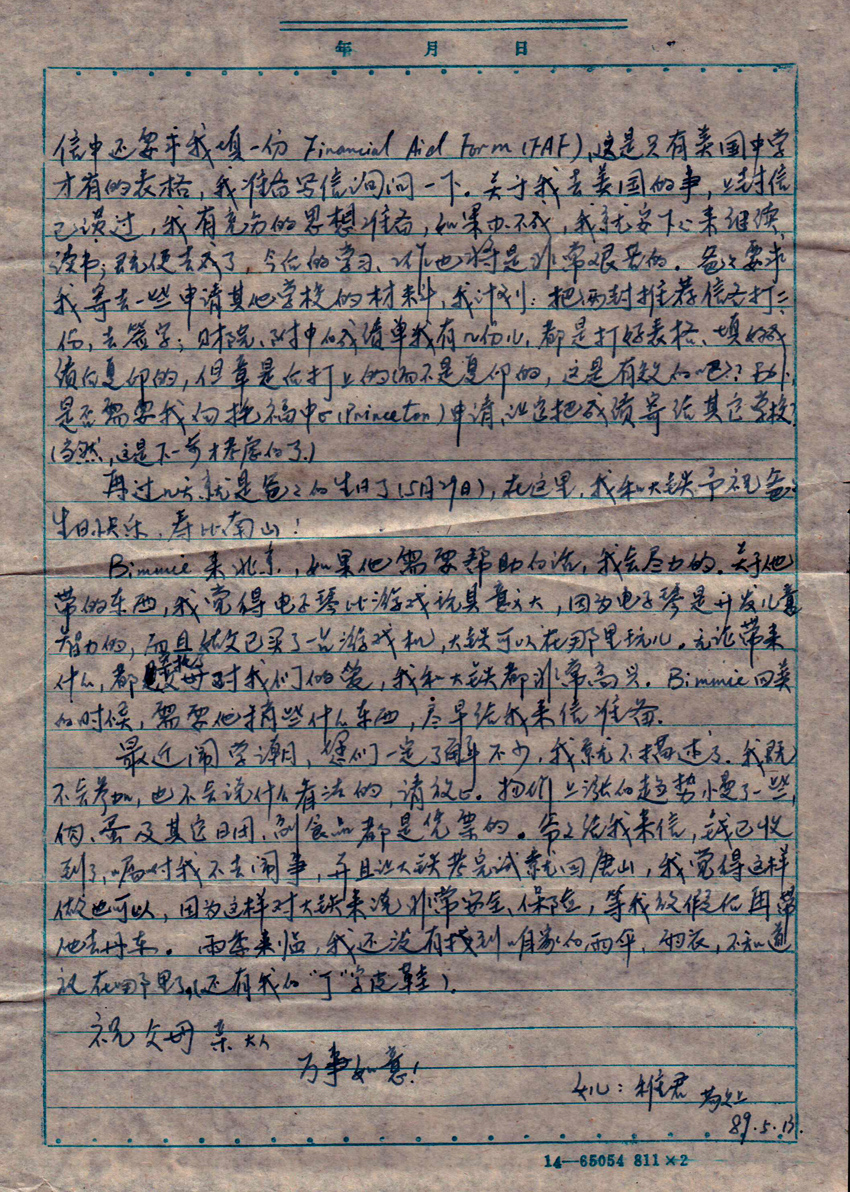 年 月 日
信中还要求我填一份 Financial Aid Form (FAF), 这是只有美国中学
才有的表格，我准备写信询问一下。关于我去美国的事，上封信
已谈过，我有充分的思想准备，如果办不成，我就安下心来继续
读书；既便去成了，今后的学习、工作也将是非常艰苦的。爸爸要求
我寄去一些申请其他学校的材料，我计划：把两封推荐信各打三
份，去签字；财院、附中的成绩单我有几份儿，都是打好表格、填好成
绩后复印的，但章是后打上的而不是复印的，这是有效的吧？
是否需要我向托福中心(Princeton)申请，让它把成绩寄给其它学校
(当然，这是下一步才考虑的了。)
再过几天就是爸爸的生日了(5月29日)，在这里，我和大铁予祝爸爸
生日快乐，寿比南山！
Bimmie 来北京，如果他需要帮助的话，我会尽力的。关于他
带的东西，我觉得电子琴比游戏玩具意义大，因为电子琴是开发儿童
智力的，而且已买了一台游戏机，大铁可以在那里玩儿。无论带来
什么，都是父母对我们的爱，我和大铁都非常高兴。Bimmie 回美
的时候，需要他捎些什么东西，尽早给我来信准备。
最近闹学潮，你们一定了解不少，我就不描述了。我既
不会参加，也不会说什么看法的，请放心。物价上涨的趋势小慢了一些，
肉、蛋及其它日用、副食品都是凭票的。爷爷给我来信，钱已收
到了，嘱咐我不去闹事，并且让大铁考完试就回唐山，我觉得这样
做也可以，因为这样对大铁来说非常安全、保险，等我放假后再带
他去丹东。雨季来临，我还没有找到咱家的雨伞、雨衣，不知道
放在哪里了(还有我的“丁”字皮鞋)。
祝父母亲大人
万事如意！
女儿：维君 敬上
89.5.13.
14—65054 811×2